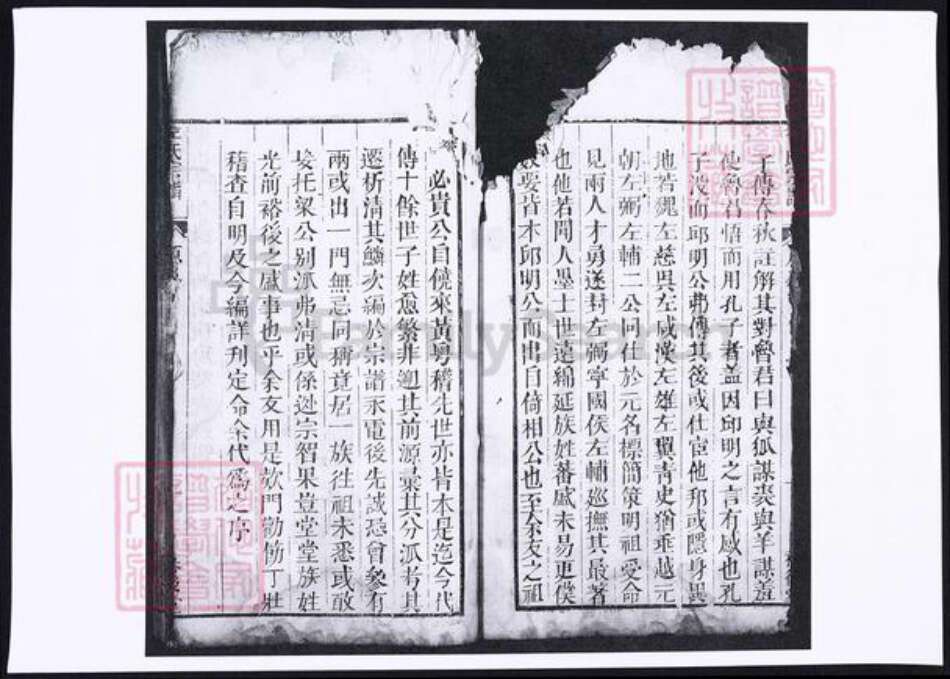 子傳春秋註解其對魯君曰與狐謀裘與羊謀羞
使魯君悟而用孔子者蓋因邱明之言有感也孔
子沒而邱明公弗傳其後或仕宦他邦或隱身異
地若魏左慈吳左咸漢左雄左翼青史猶垂越元
朝左弼左輔二公同仕於元名標簡策明祖受命
見兩人才勇遂封左弼寧國侯左輔巡撫其最著
也他若閩人墨士世遠綿延族姓蕃盛未易更僕
要皆木邱明公而出自倚相公也至余友之祖
必貴公自饒來黃粵稽先世亦皆本是迄今代
傳十餘世子姓愈繁非遡其前源彙其分派考其
遷析清其鱗次編於宗譜永電後先誠恐會象有
兩或出一門無忌同稱竟居一族徃祖未悉或敢
妄托梁公別派弗清或係遜宗智果豈堂堂族姓
光前裕後之盛事也乎余友用是欵門勸飭丁壯
稽查自明及今編詳刊定命余代爲之序
左氏宗譜
FamilySearch